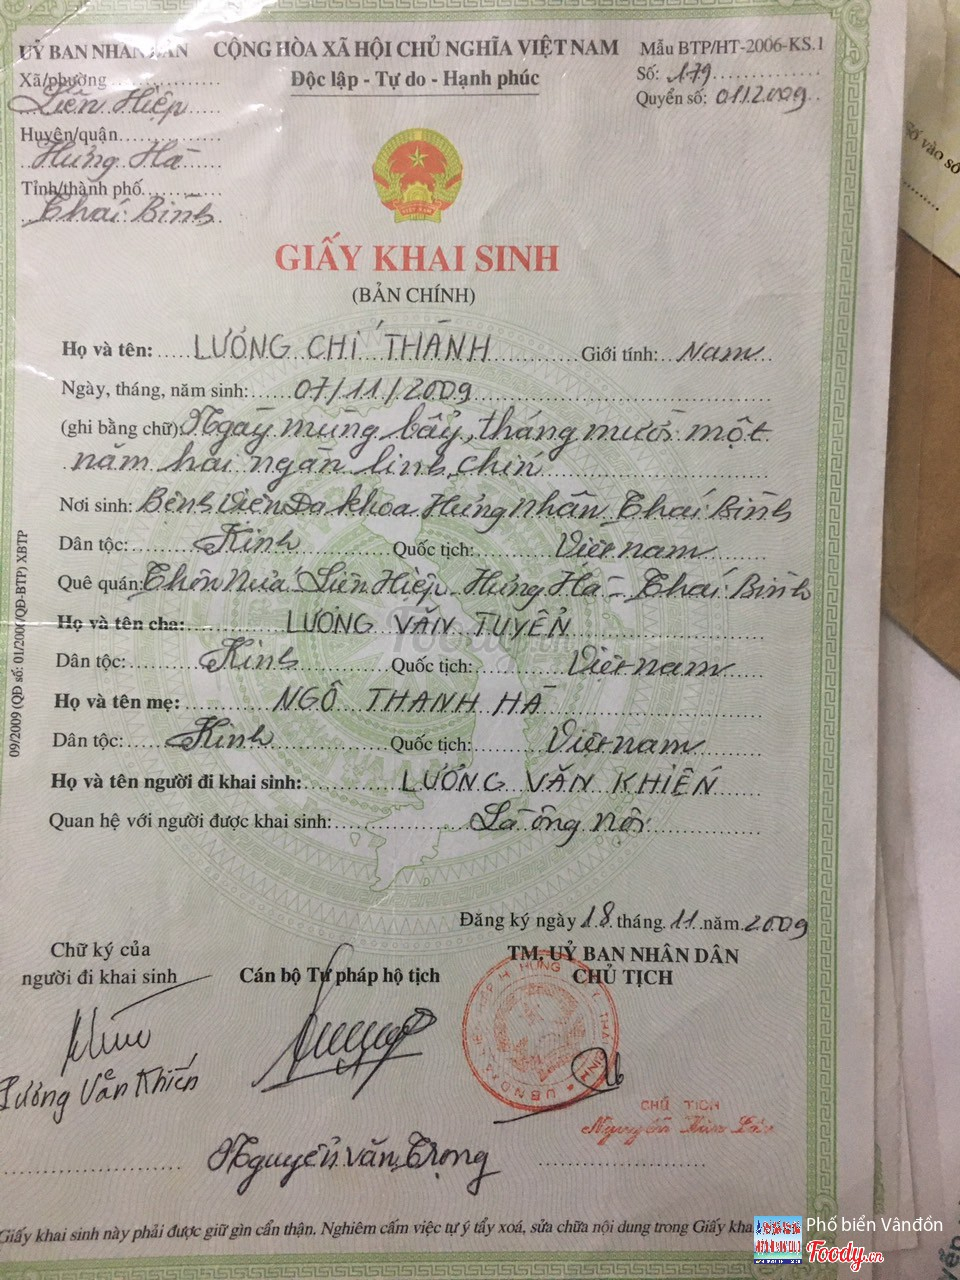 UỶ BAN NHÂN DÂN
Xã/phường
Liên Hiệp
Huyện/quận
Hưng Hà
Tỉnh/thành phố
Thái Bình
CỘNG HÒA XÃ HỘI CHỦ NGHĨA VIỆT NAM
Độc lập - Tự do - Hạnh phúc
Mẫu BTP/HT-2006-KS.1
Số: 179
Quyển số: 01/2009
Số vào sổ
GIẤY KHAI SINH
(BẢN CHÍNH)
Họ và tên: LƯƠNG CHÍ THÀNH Giới tính: Nam
Ngày, tháng, năm sinh: 07/11/2009
(ghi bằng chữ) Ngày mùng bảy, tháng mười một
năm hai ngàn linh chín
Nơi sinh: Bệnh viện Đa khoa Hưng Nhân Thái Bình
Dân tộc: Kinh Quốc tịch: Việt nam
Quê quán: Thôn Nứa Liên Hiệp Hưng Hà - Thái Bình
Họ và tên cha: LƯƠNG VĂN TUYỂN
Dân tộc: Kinh Quốc tịch: Việt nam
Họ và tên mẹ: NGÔ THANH HÀ
Dân tộc: Kinh Quốc tịch: Việt nam
Họ và tên người đi khai sinh: LƯƠNG VĂN KHIÊN
Quan hệ với người được khai sinh: Là ông nội
Đăng ký ngày 18 tháng 11 năm 2009
Chữ ký của
người đi khai sinh
Cán bộ Tư pháp hộ tịch
TM, UỶ BAN NHÂN DÂN
CHỦ TỊCH
Lương Văn Khiên
Nguyễn Văn Trọng
CHỦ TỊCH
Nguyễn
09/2009 (QĐ số: 01/200 /QĐ-BTP) XBTP
Giấy khai sinh này phải được giữ gìn cẩn thận. Nghiêm cấm việc tự ý tẩy xoá, sửa chữa nội dung trong Giấy
Phố biển Vânđồn
Foody.vn